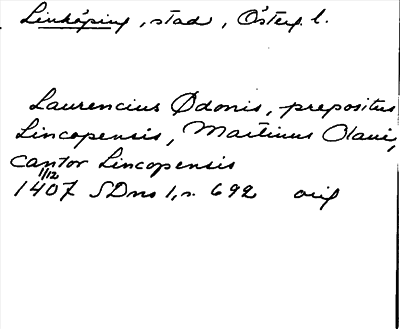 Linköping, stad, Österg. l.
Laurencius Odonis, prepositus
Lincopensis, Martinus Olaui,
cantor Lincopensis
1/12
1407 SDns 1, n. 692 orig